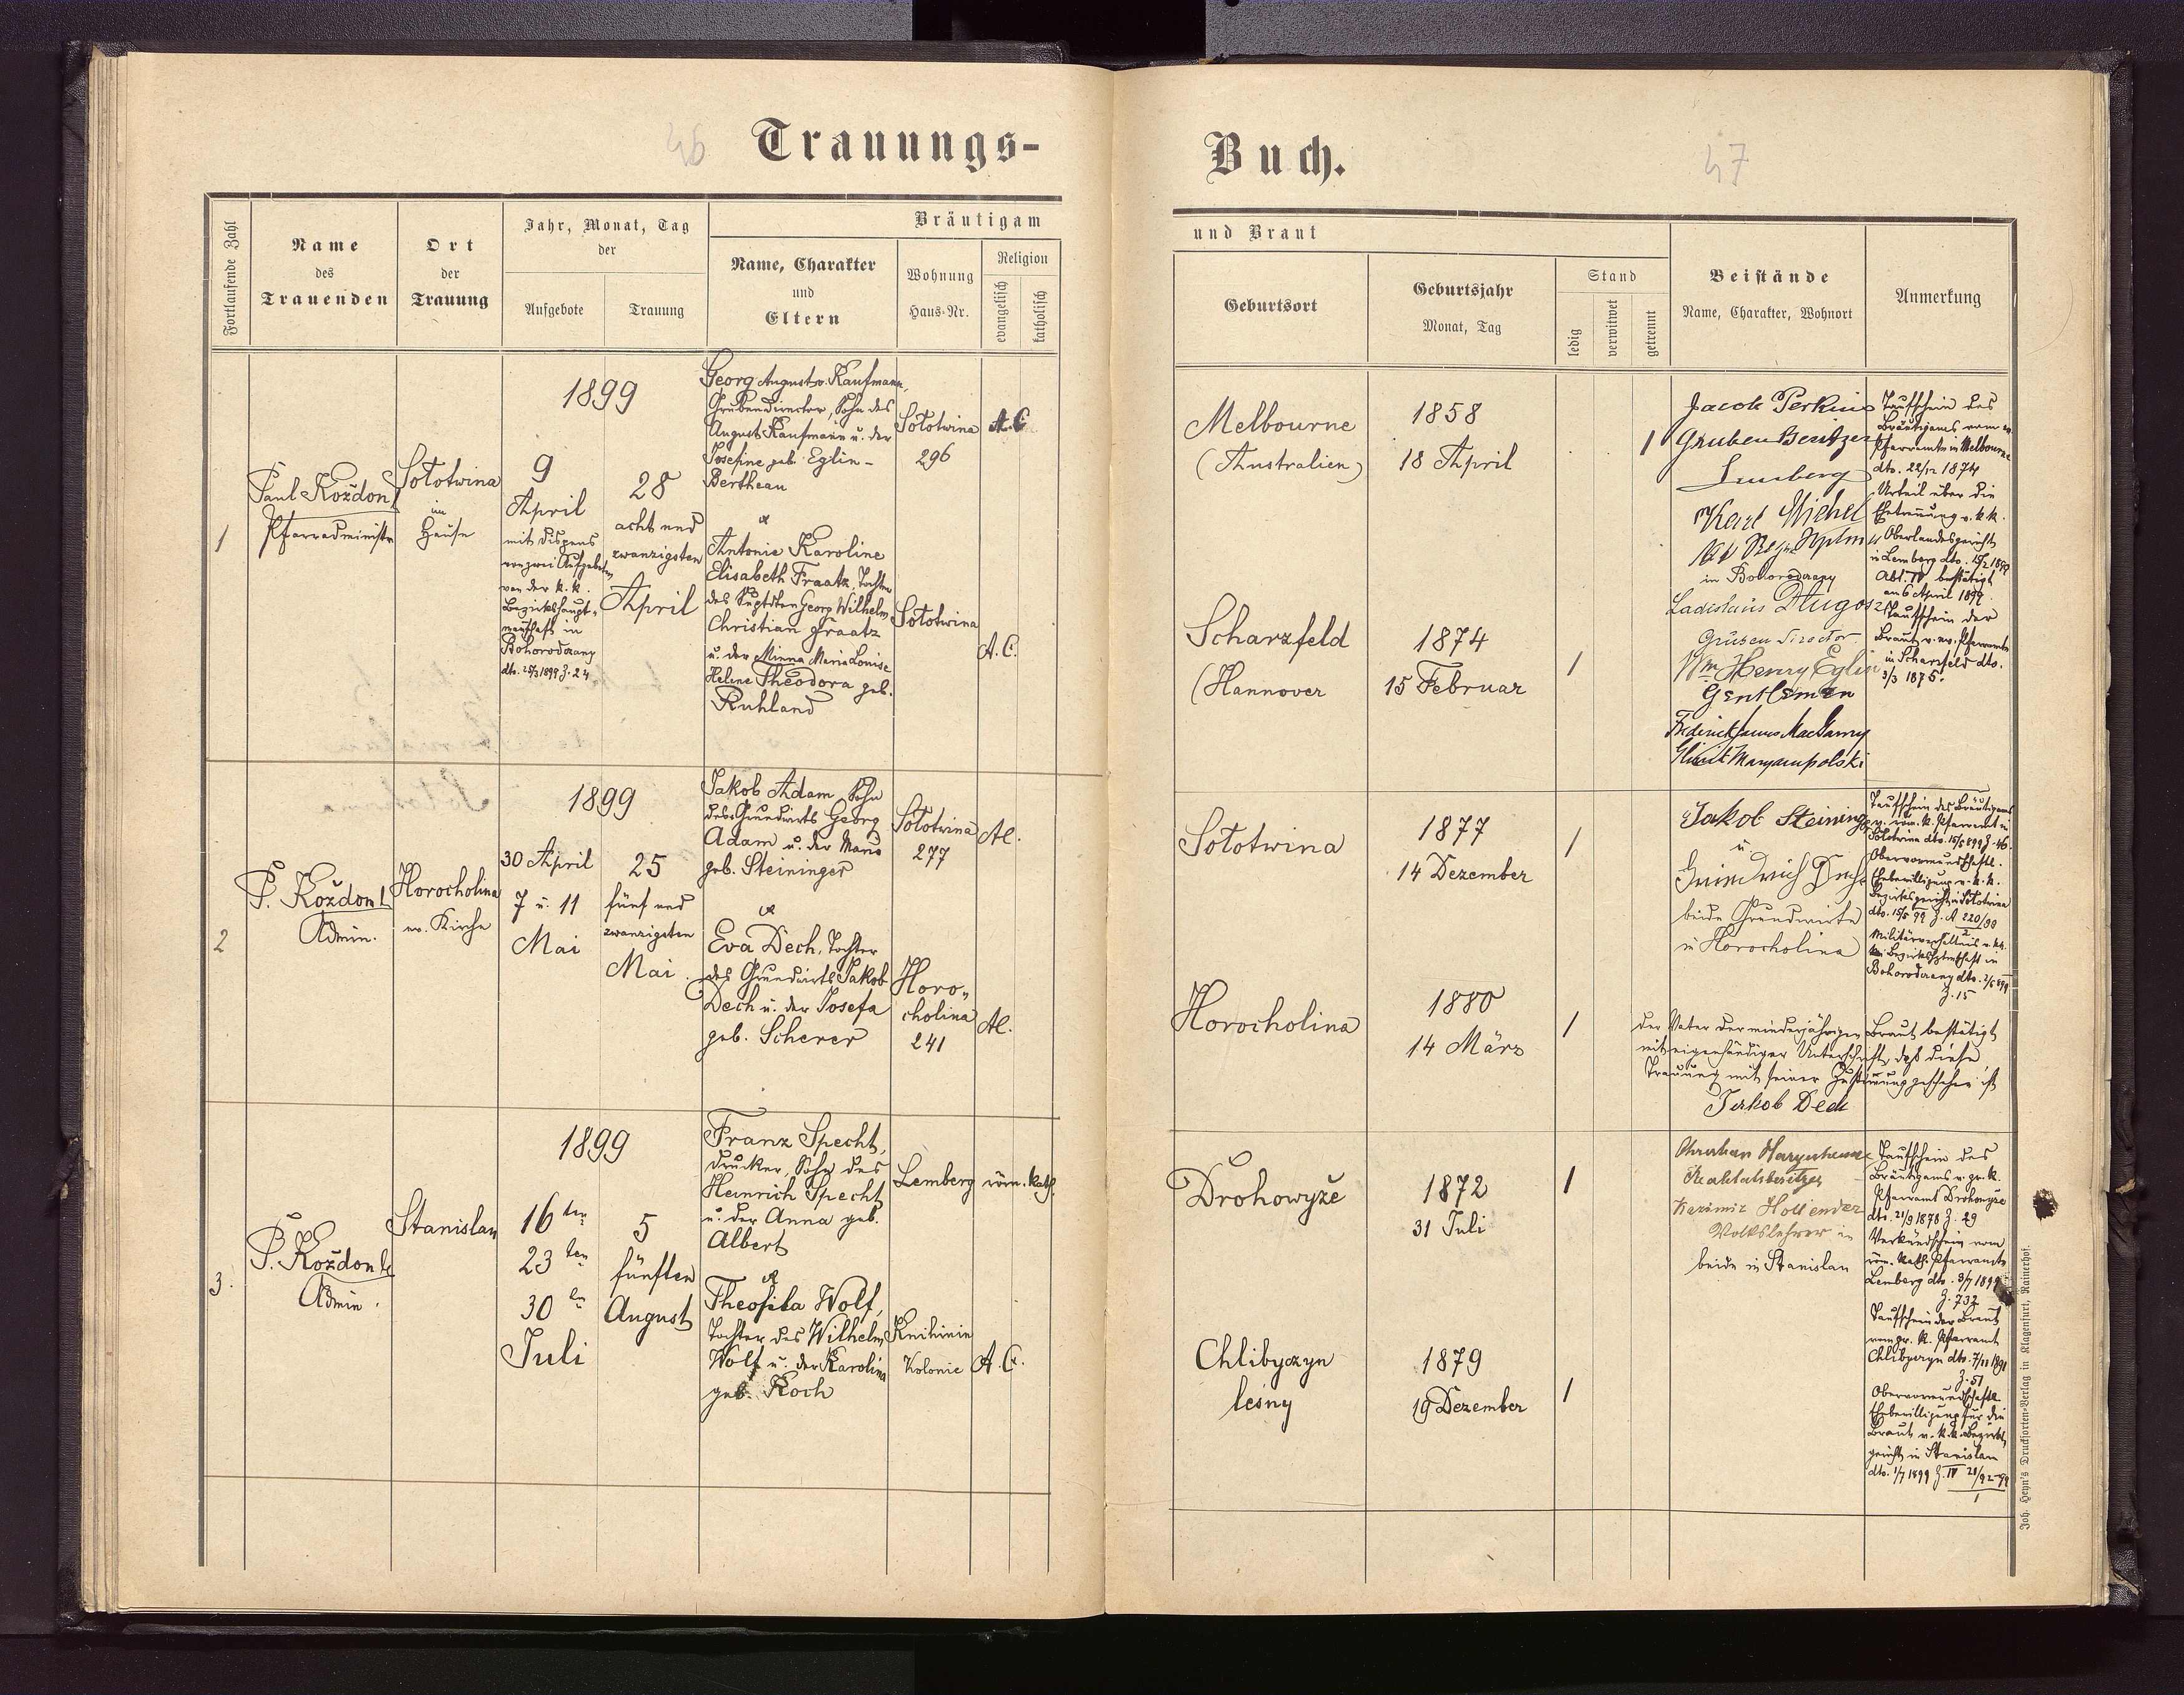 46
Trauungs-
Fortlaufende Zahl
Name
des
Trauenden
Ort
der
Trauung
Jahr, Monat, Tag
der
Aufgebote
Trauung
Bräutigam
Name, Charakter
und
Eltern
Wohnung
Haus-Nr.
Religion
evangelisch
katholisch
1
Paul Koždon
Pfarradministr
Sołotwina
im
Hause
1899
9
April
mit Dispens
von zwei Aufgeboten
von der k. k.
Bezirkshaupt-
mannschaft in
Bohorodczany
dto. 25/3 1899 Z. 24
28
acht und
zwanzigsten
April
Georg August v. Kaufmann,
Grubendirector, Sohn des
August Kaufmann u. der
Josefine geb. Eglin-
Bertheau
&
Antonie Karoline
Elisabeth Fraatz, Tochter
des Georg Wilhelm
Christian Fraatz
u. der Minna Maria Louise
Helene Theodora geb.
Ruhland
Sołotwina
296
A.C.
Sołotwina
A.C.
2
P. Koždon
Admin.
Horocholina
ev. Kirche
1899
30 April
7 u. 11
Mai
25
fünf und
zwanzigsten
Mai.
Jakob Adam, Sohn
des Grundwirts Georg
Adam u. der
geb. Steininger
&
Eva Dech, Tochter
des Grundwirts Jakob
Dech u. der Josefa
geb. Scherer
Sołotwina
277
Horo-
cholina
241
3.
P. Koždon
Admin.
Stanislau
1899
16 ten
23 ten
30 ten
Juli
5
fünften
August
Franz Specht,
Drucker, Sohn des
Heinrich Specht
u. der Anna geb.
Albert
&
Theofila Wolf,
Tochter des Wilhelm
Wolf u. der Karolina
geb. Koch
Lemberg
röm. kath.
Knihinin
Kolonie
A. C.
Buch.
47
und Braut
Geburtsort
Geburtsjahr
Monat, Tag
Stand
ledig
verwitwet
getrennt
Beistände
Name, Charakter, Wohnort
Anmerkung
Melbourne
(Australien)
1858
18 April
1
Jacob Perkins
Gruben Besitzer
Lemberg
Karl Michel
in Bohorodczany
Ladislaus Długosz
Gruben Director
Wm Henry Eglin
Gentleman
Frederick James MacGarvy
Maryampolski
Taufschein des
Bräutigams vom ev.
Pfarramte in Melbourne
dto. 22/12 1874
Urteil über die
Ehetrennung v. k. k.
Oberlandesgericht
in Lemberg dto.
Abt. IV bestätigt
am 6 April 1899.
Taufschein der
Braut v. ev. Pfarramte
in Scharzfeld dto.
3/3 1875.
Scharzfeld
(Hannover
1874
15 Februar
1
Sołotwina
1877
14 Dezember
1
Jakob Steininger
u.
beide Grundwirte
in Horocholina
Taufschein des Bräutigams
v. röm. k. Pfarramt in
Sołotwina dto. 15/5 899 Z. 46.
Obervormundschaftl.
Ehebewilligung v. k. k.
Bezirksgericht in Sołotwina
dto. 15/5 99 Z. A 220/99
2
Bohorodczany dto.
Z. 15
Horocholina
1880
14 März
1
Der Vater der minderjährigen Braut bestätigt
mit eigenhändiger Unterschrift, daß diese
Trauung mit seiner Zustimmung geschehen ist
Jakob Dech
Drohowyże
1872
31 Juli
1
Realitätsbesitzer
Kazimir Hollender
Volkslehrer in
beide in Stanislau
Taufschein des
Bräutigams v. gr. k.
Pfarramt Drohowyże
dto. 21/9 1878 Z. 29
Verkündschein vom
röm. kath. Pfarramte
Lemberg dto. 3/7 1899
Z. 732
Taufschein der Braut
vom gr. k. Pfarramt
Chlibyczyn dto. 7/11 1891
Z. 51
Obervormundschaftl.
Ehebewilligung für die
Braut v. k. k. Bezirks
gericht in Stanislau
dto. 1/7 1899 Z. IV 28/92-99
1
Chlibyczyn
leśny
1879
19 Dezember
1
Joh. Heyn's Drucksorten-Verlag in Klagenfurt, Rainerhof.